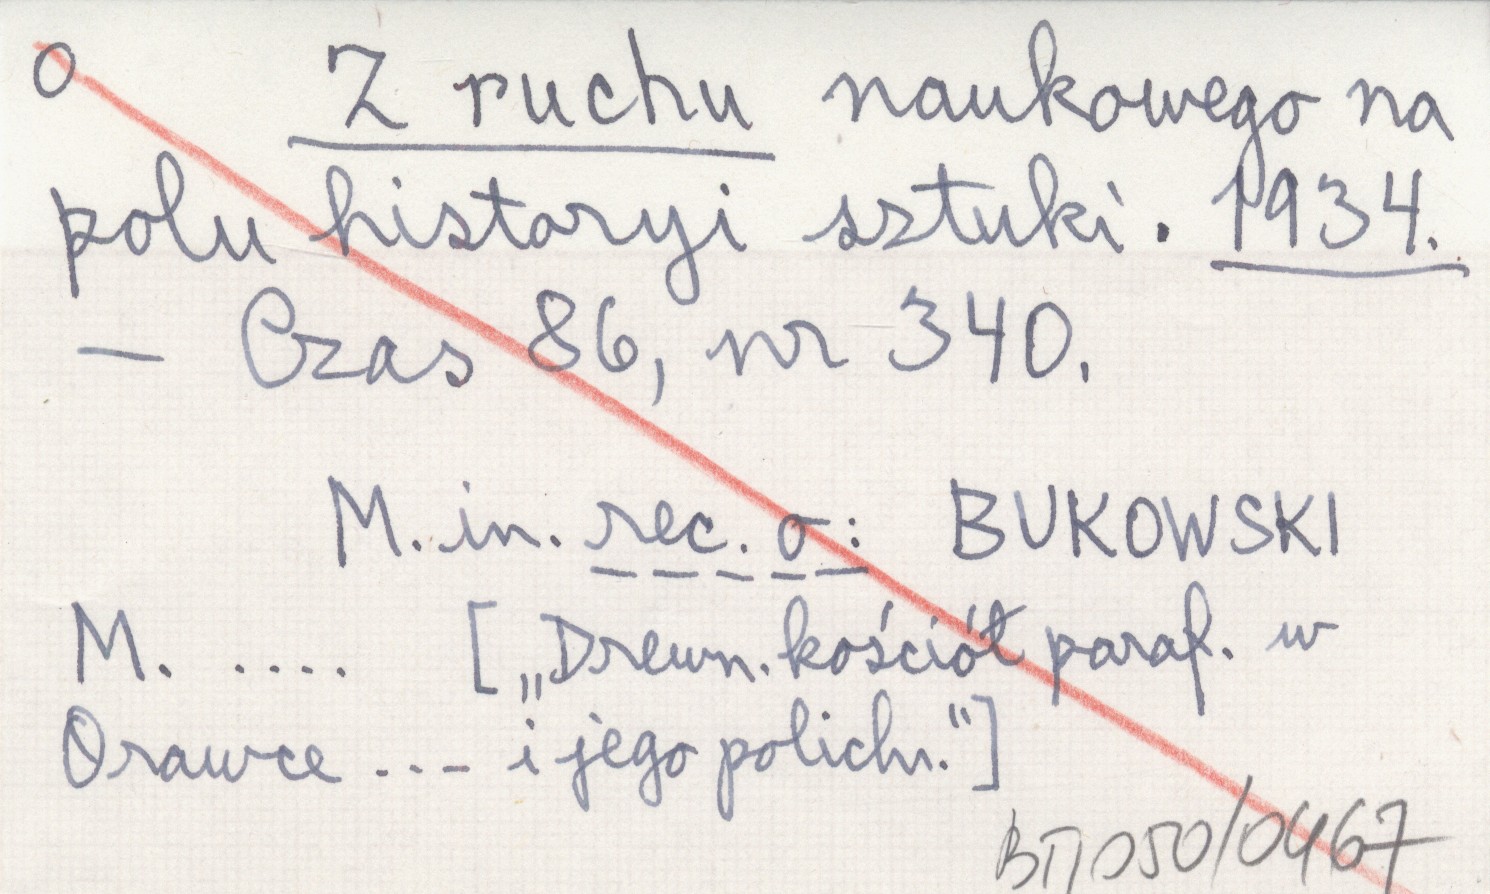 O Z ruchu naukowego na
polu historyi sztuki. 1934.
— Czas 86, nr 340.
M. in. rec. o: BUKOWSKI
M. .... [„Drewn. kościół paraf. w
Orawce ... i jego polichr.“]
050/0467